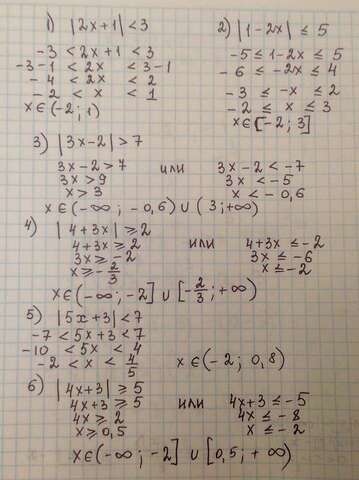 1) |2x+1| < 3
-3 < 2x+1 < 3
-3-1 < 2x < 3-1
-4 < 2x < 2
-2 < x < 1
x∈(-2; 1)
2) |1-2x| ≤ 5
-5 ≤ 1-2x ≤ 5
-6 ≤ -2x ≤ 4
-3 ≤ -x ≤ 2
-2 ≤ x ≤ 3
x∈[-2; 3]
3) |3x-2| > 7
3x-2 > 7 или 3x-2 < -7
3x > 9 3x < -5
x > 3 x < -0,6
x∈(-∞; -0,6) ∪ (3; +∞)
4) |4+3x| ≥ 2
4+3x ≥ 2 или 4+3x ≤ -2
3x ≥ -2 3x ≤ -6
x ≥ -2/3 x ≤ -2
x∈(-∞; -2] ∪ [-2/3; +∞)
5) |5x+3| < 7
-7 < 5x+3 < 7
-10 < 5x < 4
-2 < x < 4/5 x∈(-2; 0,8)
6) |4x+3| ≥ 5
4x+3 ≥ 5 или 4x+3 ≤ -5
4x ≥ 2 4x ≤ -8
x ≥ 0,5 x ≤ -2
x∈(-∞; -2] ∪ [0,5; +∞)